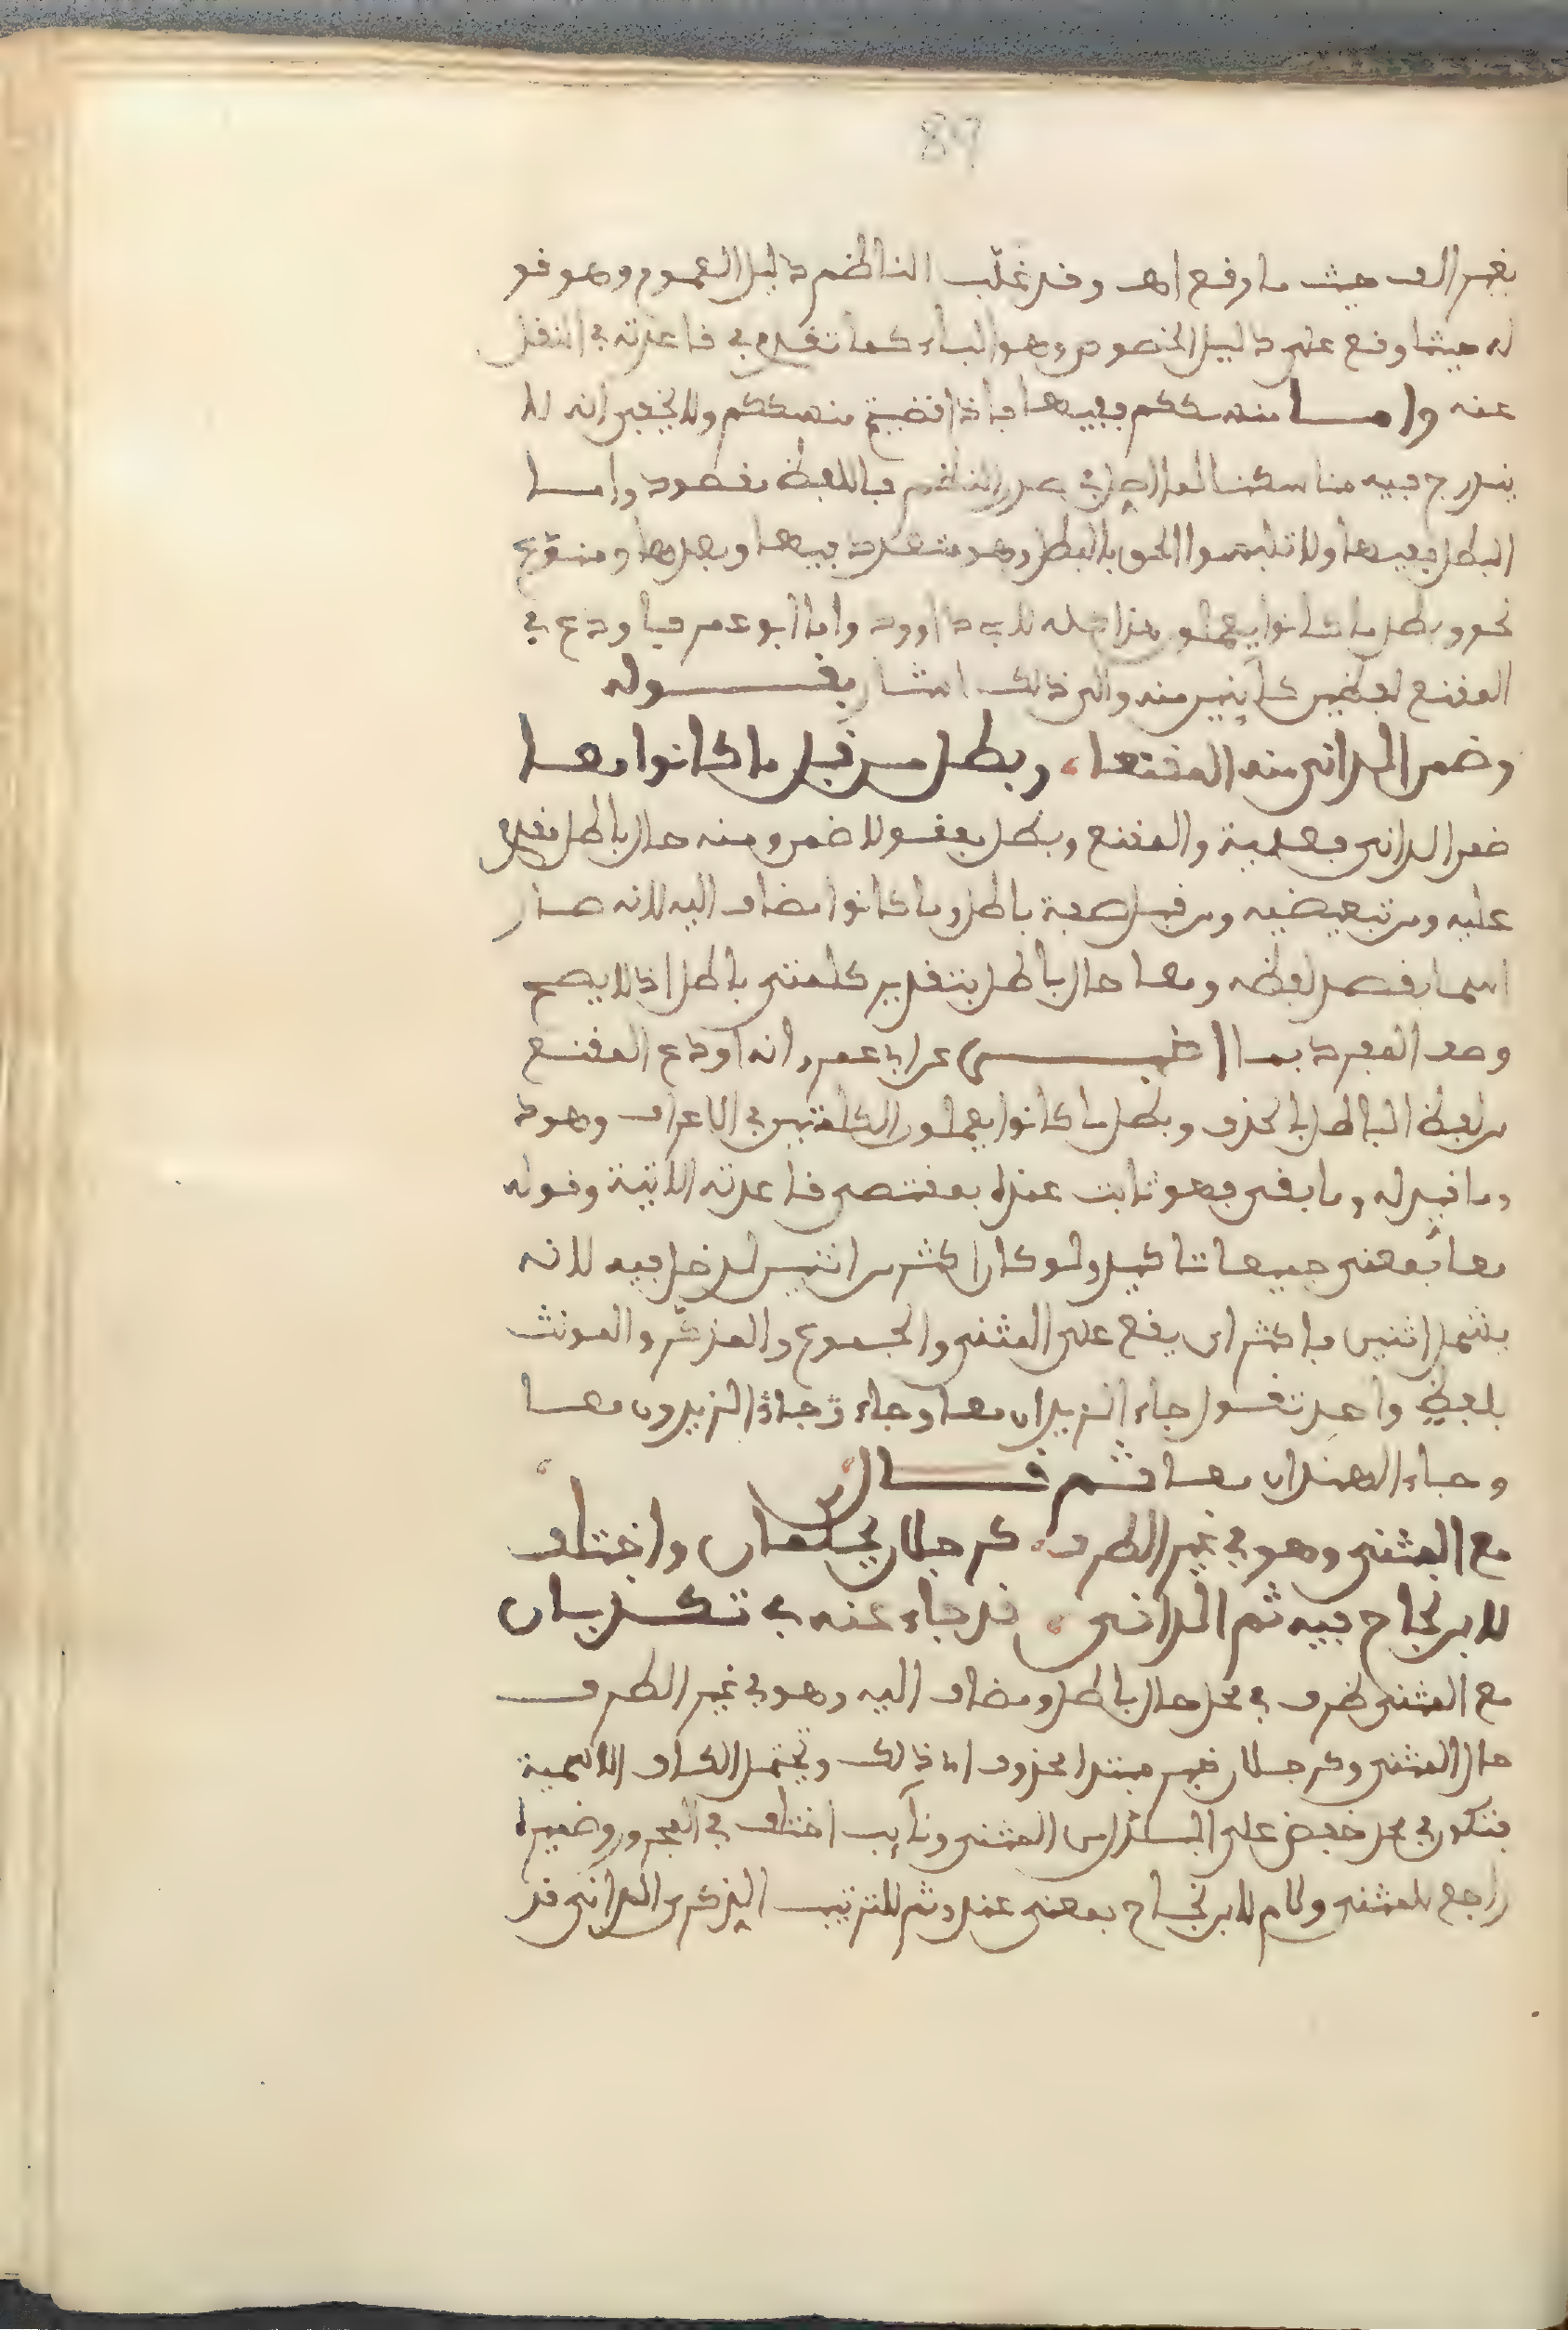 89
بغير الف حيث ما وقع اهـ وقد غلّب الناظم دليل العموم وهو قو
له حيثما وقع على دليل الخصوص وهو الباء كما تقدم في قاعدته في النقل
عنه واما منسككم ففيها فاذا قضيتم منسككم ولا يخفى انه لا
يندرج فيه مناسكنا لما في صدر النظم فاللفظ مقصود واما
البطل ففيها ولا تلبسوا الحق بالبطل وهو متعدد فيها وبعدها ومنوّع
نحو وبطل ما كانوا يعملون هذا كله لابي داوود واما ابو عمر فاودع في
المقنع لفظين كاينين منه والى ذلك اشار بقوله
وضمن الداني منه المقنعا وبطل من قبل ما كانوا معا
ضمن الداني فعلية والمقنع وبطل مفعولا ضمن ومنه حال باطل مقدم
عليه ومن تبعيضيه ومن قبل صفة باطل وما كانوا مضاف اليه لانه صار
اسما بقصد لفظه ومعا حال باطل بتقدير كلمتي باطل اذ لا يصح
وصف المفرد بها اخبر عن ابي عمرو انه اودع المقنع
من لفظ الباطل بالحذف وبطل ما كانوا يعملون الكلمتين في الاعراف وهود
وما قبله وما بقى فهو ثابت عنده بمقتضى قاعدته الاتية وقوله
معا بمعنى جميعا تاكيد ولو كان اكثر من اثنين لدخل فيه لانه
يشمل اثنين فاكثر اي يقع على المثنى والمجموع والمذكّر والمونث
بلفظ واحد تقول جاء الزيدان معا وجاء الزيدون معا
وجاء الهندان معا ثم قال
مع المثنى وهو في غير الطرف كرجلان يحكمان واختلف
لابن نجاح فيه ثم الداني قد جاء عنه في تكذبان
مع المثنى ظرف في محل حال باطل ومضاف اليه وهو في غير الطرف
حال المثنى وكرجلان خبر مبتدا محذوف اي ذلك وتحتمل الكاف الاسمية
فتكون في محل خفض على البدل من المثنى ونايب اختلف في المجرور وضميره
راجع للمثنى ولام لابن نجاح بمعنى عند وثم للترتيب الذكري الداني قد